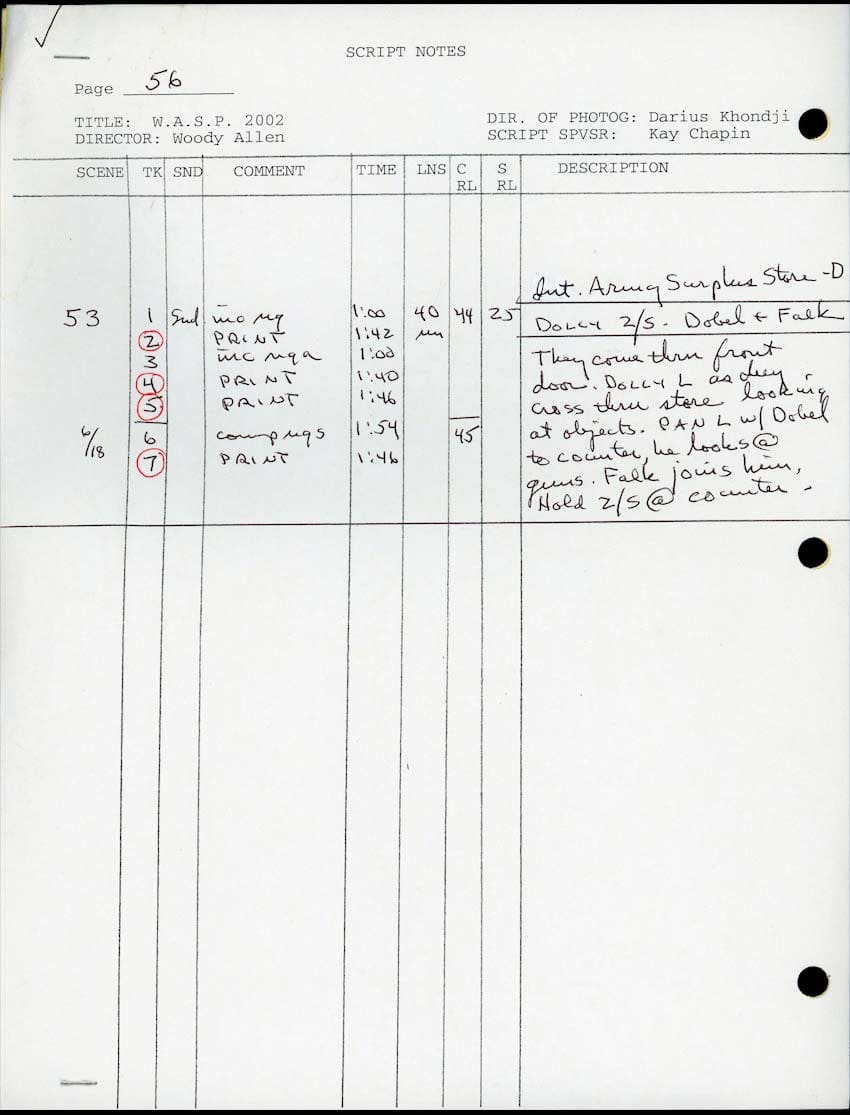 SCRIPT NOTES
Page 56
TITLE: W.A.S.P. 2002
DIR. OF PHOTOG: Darius Khondji
DIRECTOR: Woody Allen
SCRIPT SPVSR: Kay Chapin
SCENE TK SND COMMENT TIME LNS C RL S RL DESCRIPTION
Int. Army Surplus Store -D
53 1 Snd inc ng 1:00 40 44 25
DOLLY 2/S. Dobel + Falk
② PRINT 1:42
3 inc 1:00
④ PRINT 1:40
⑤ PRINT 1:46
6/18 6 comp ngs 1:54 45
⑦ PRINT 1:46
They come thru front
door. DOLLY L as they
cross thru store looking
at objects. PAN L w/ Dobel
to counter, he looks @
guns. Falk joins him,
Hold 2/S @ counter -